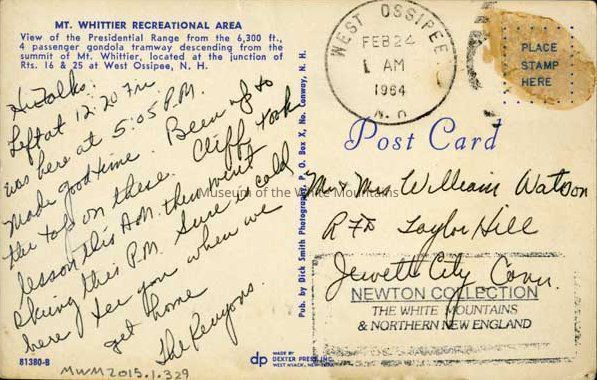 MT. WHITTIER RECREATIONAL AREA
View of the Presidential Range from the 6,300 ft.,
4 passenger gondola tramway descending from the
summit of Mt. Whittier, located at the junction of
Rts. 16 & 25 at West Ossipee, N. H.
Hi Folks:
Left at 12:20 Fri
was here at 5:05 P.M.
Made good time. Been up to
the top on these. Cliff took
lesson this A.M. then went
skiing this P.M. Sure is cold
here. See you when we
get home
The Runyons.
81380-B
MWM2015.1.329
Pub. by Dick Smith Photography, P. O. Box X, No. Conway, N. H.
dp
MADE BY
DEXTER PRESS, INC.
WEST NYACK, NEW YORK
WEST OSSIPEE
FEB 24
AM
1964
N. H.
PLACE
STAMP
HERE
Post Card
Mr & Mrs William Watson
RFD Taylor Hill
Jewett City Conn.
NEWTON COLLECTION
THE WHITE MOUNTAINS
& NORTHERN NEW ENGLAND
Museum of the White Mountains